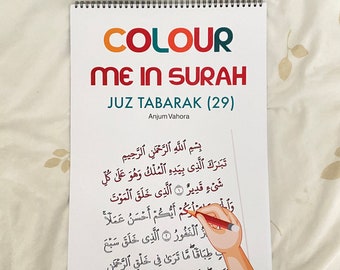 COLOUR
ME IN SURAH
JUZ TABARAK (29)
Anjum Vahora
بِسْمِ ٱللَّهِ ٱلرَّحْمَٰنِ ٱلرَّحِيمِ
تَبَٰرَكَ ٱلَّذِى بِيَدِهِ ٱلْمُلْكُ وَهُوَ عَلَىٰ كُلِّ
شَىْءٍ قَدِيرٌ ١ ٱلَّذِى خَلَقَ ٱلْمَوْتَ
أَيُّكُمْ أَحْسَنُ عَمَلًا
ٱلْغَفُورُ ٢ ٱلَّذِى خَلَقَ سَبْعَ
طِبَاقًا مَّا تَرَىٰ فِى خَلْقِ ٱلرَّحْمَٰنِ